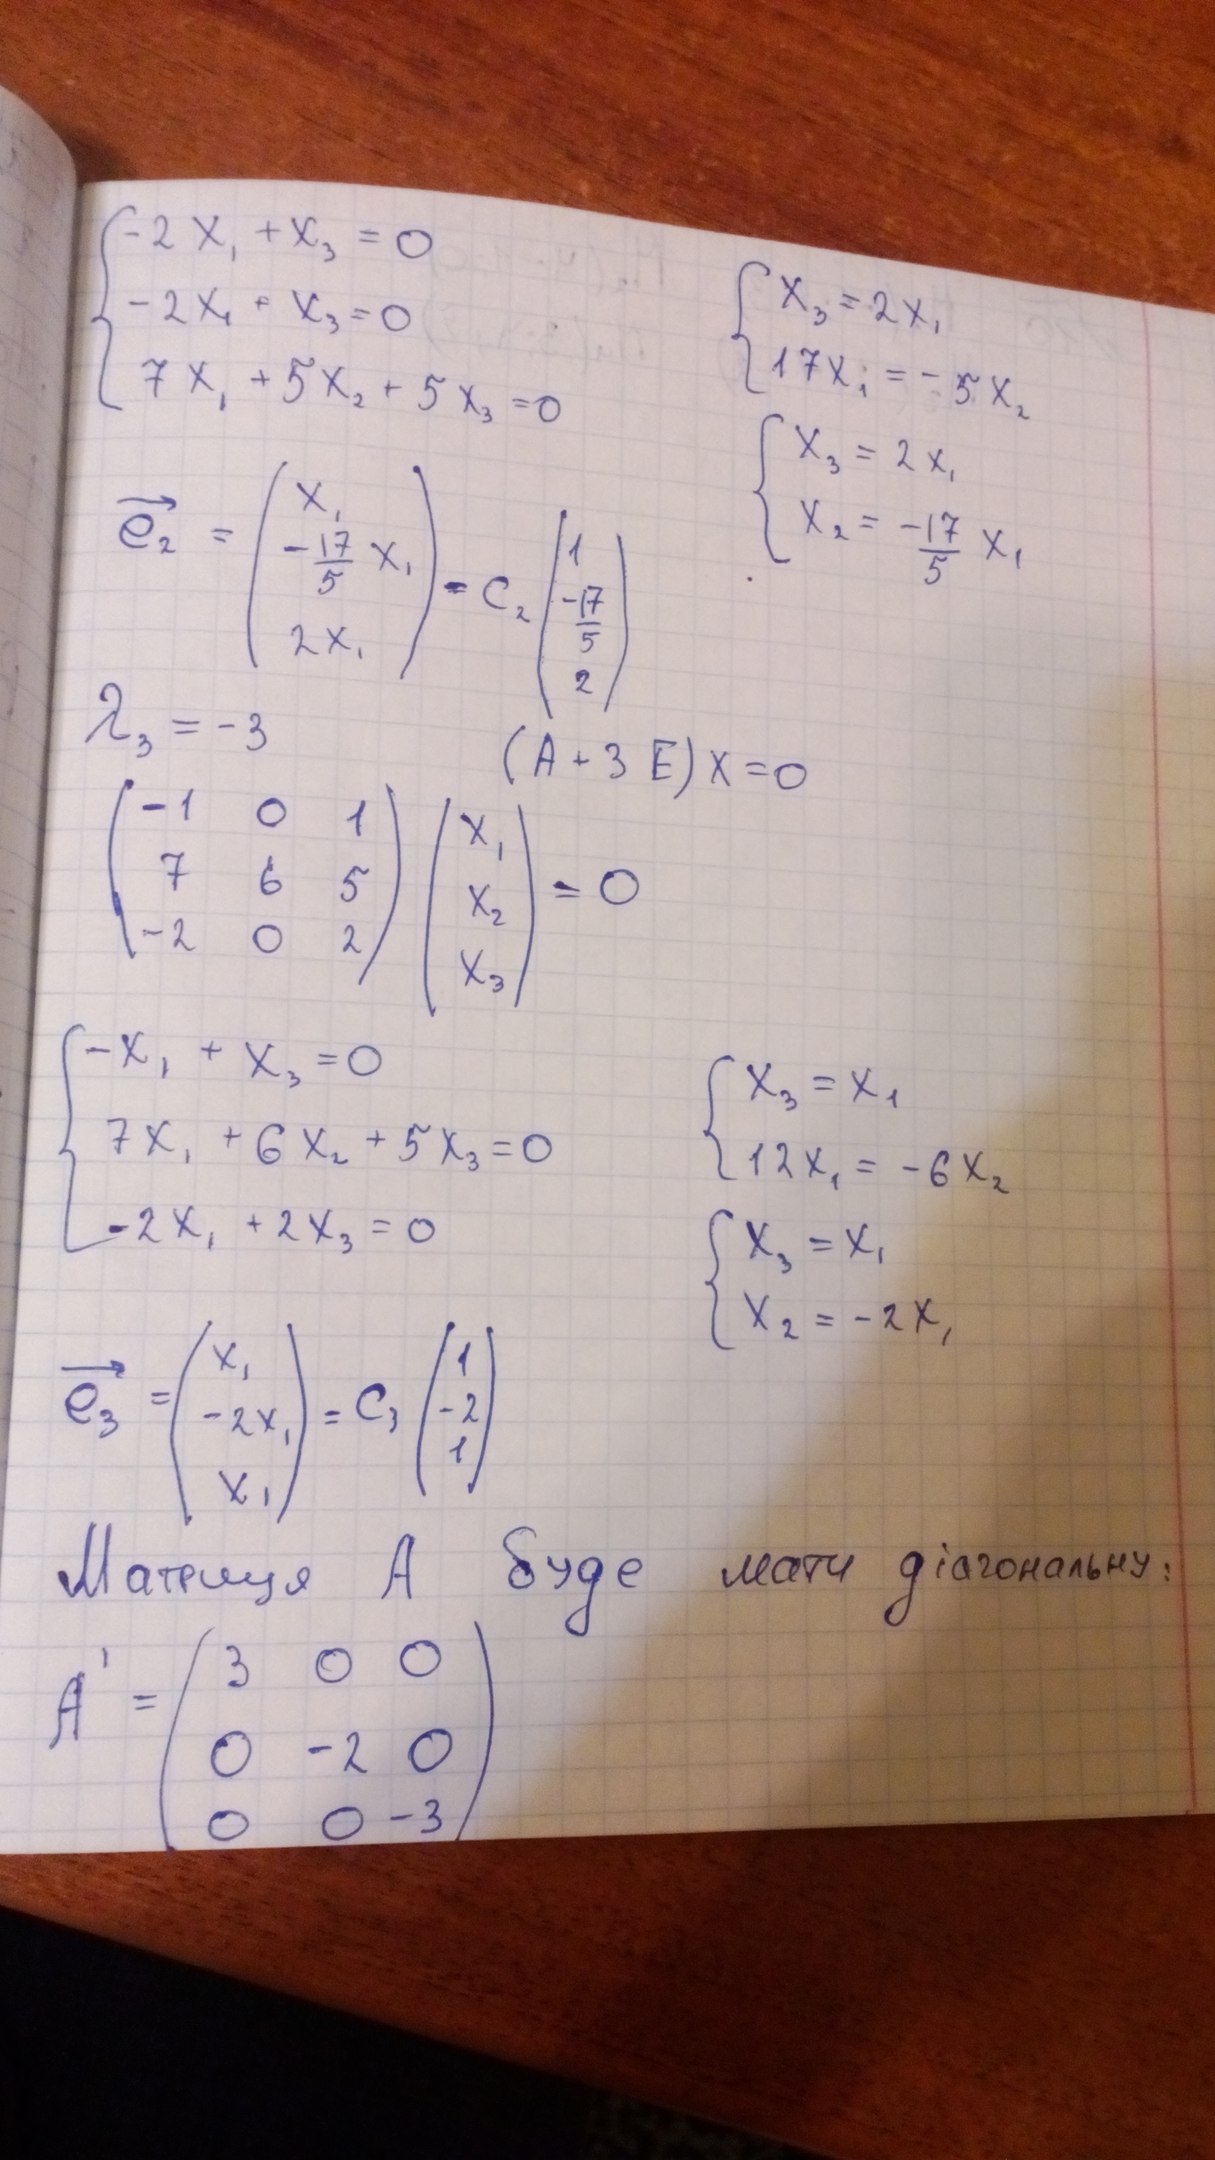 -2x₁ + x₃ = 0
-2x₁ + x₃ = 0
7x₁ + 5x₂ + 5x₃ = 0
x₃ = 2x₁
17x₁ = -5x₂
x₃ = 2x₁
x₂ = -17/5 x₁
e₂ = (x₁ -17/5 x₁ 2x₁) = C₂ (1 -17/5 2)
λ₃ = -3
(A + 3E)x = 0
(-1 0 1
7 6 5
-2 0 2) (x₁ x₂ x₃) = 0
-x₁ + x₃ = 0
7x₁ + 6x₂ + 5x₃ = 0
-2x₁ + 2x₃ = 0
x₃ = x₁
12x₁ = -6x₂
x₃ = x₁
x₂ = -2x₁
e₃ = (x₁ -2x₁ x₁) = C₃ (1 -2 1)
Матриця А буде мати діагональну:
A' = (3 0 0
0 -2 0
0 0 -3)